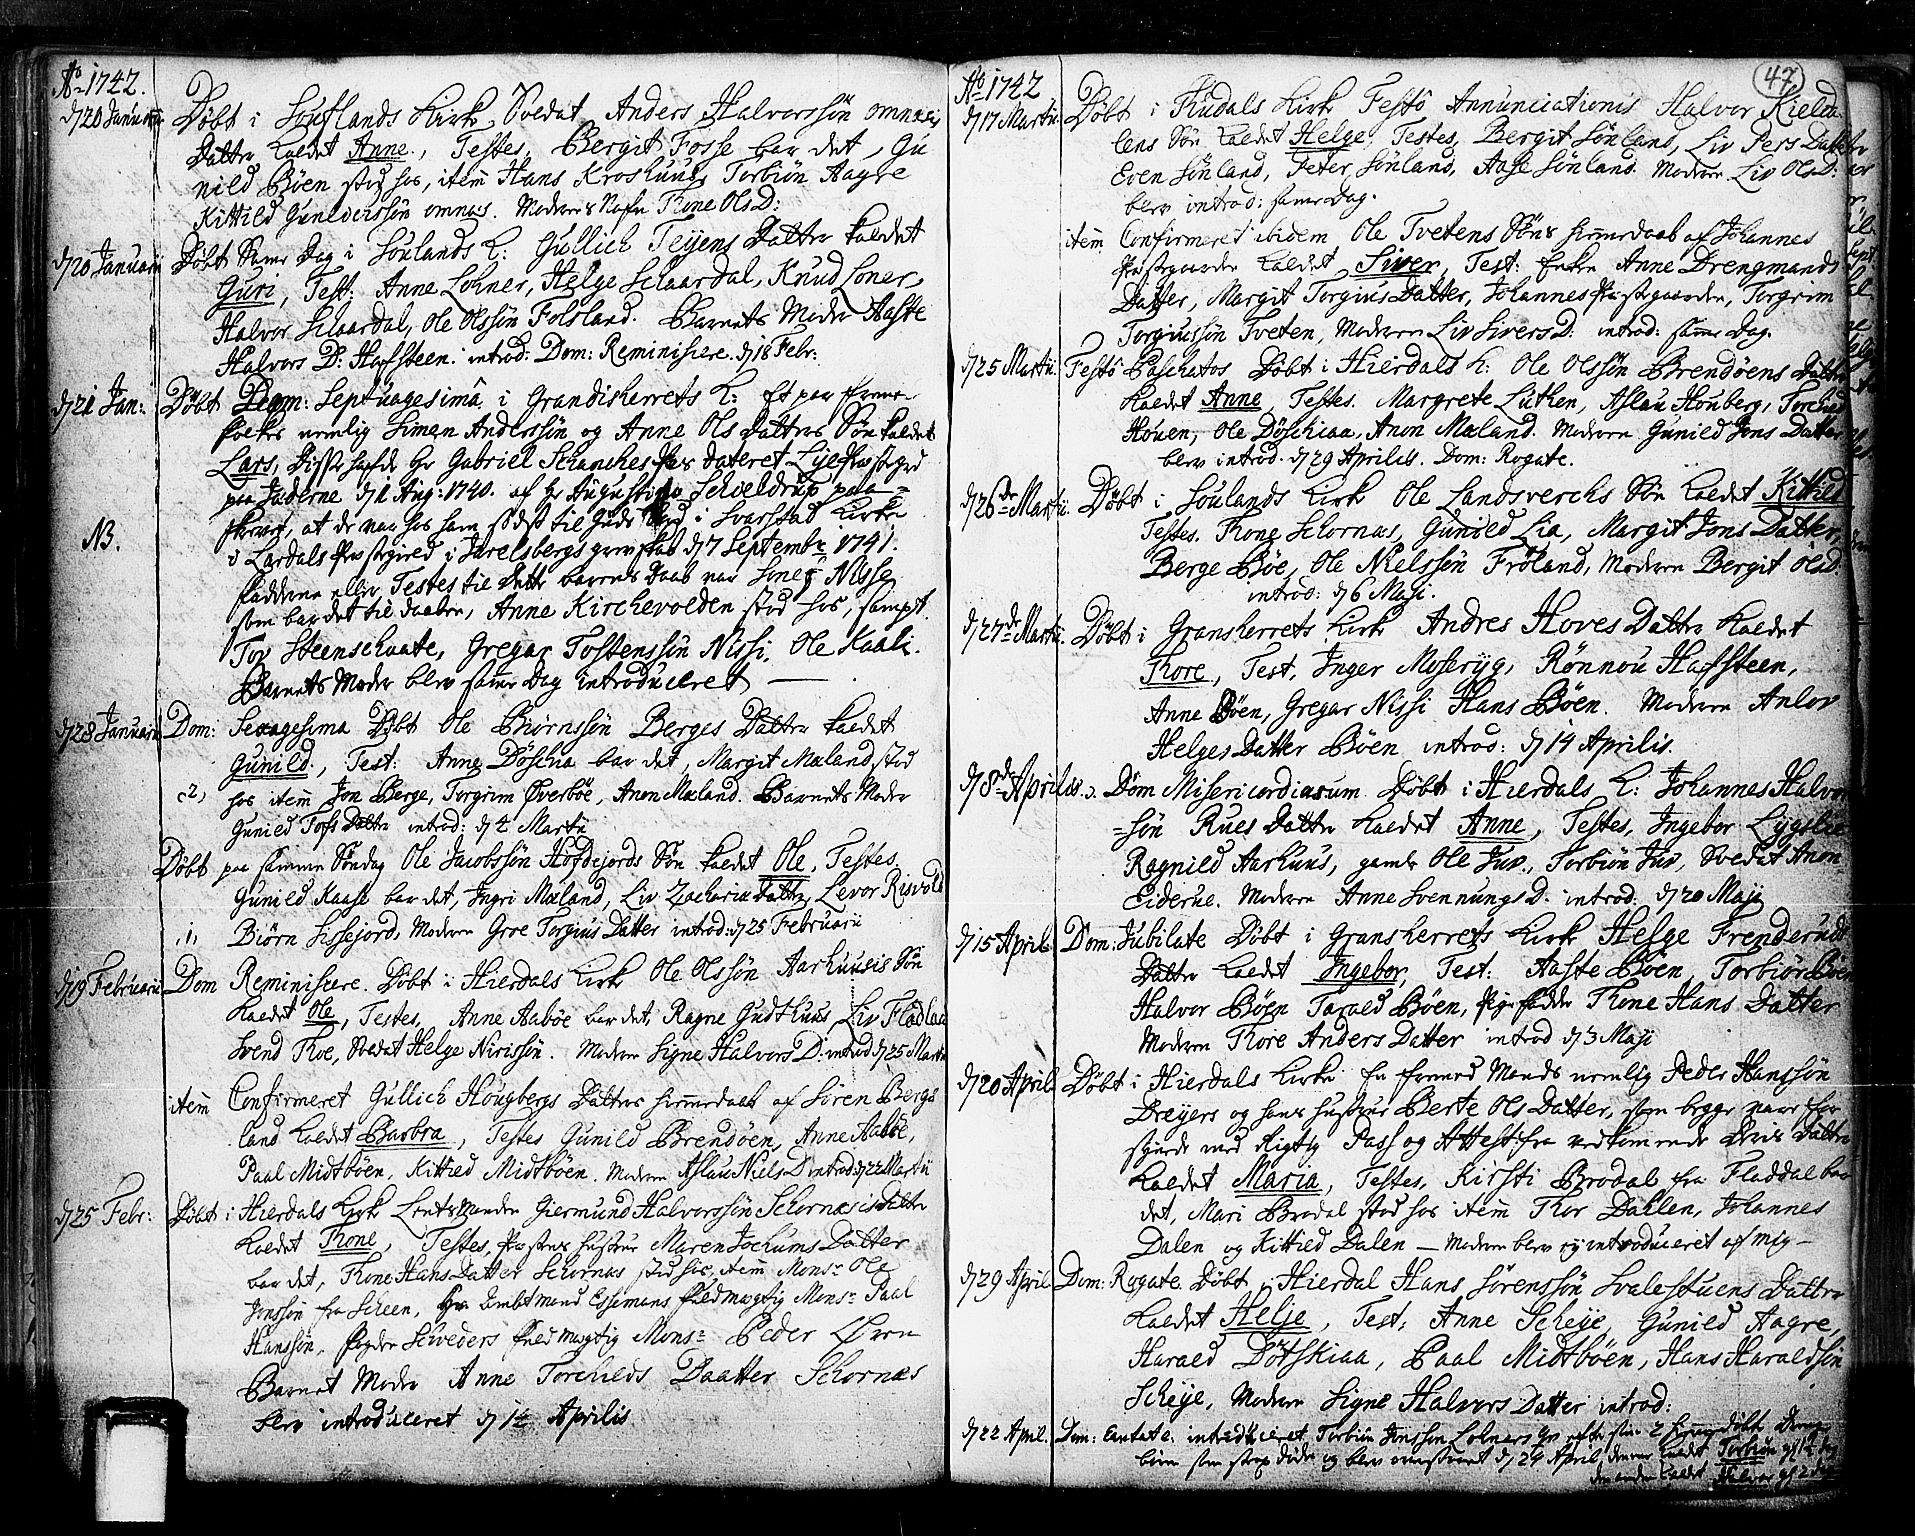 Ao 1742.
d 20 Januarii Döbt i Souflands Kirk Soldat Anders Halvorssön omnæs
Datter kaldet Anne, Testes, Bergit Fosse bar det, Gu
nild Böen stod hos, item Hans Kroshuus Torbiön Aagre
Kittild Gunlverssön omnæs. Moderens Nafn Thone Ols D:
d 20 Januarii Döbt Same Dag i Soulands K: Gullich Teijens Datter kaldet
Guri, Test: Anne Lohner, Helge Schaardal, Knud Loner,
Halvor Schaardal, Ole Olssön Folsland. Barnets Moder Aaste
Halvors D: Hafsteen. introd: Dom: Reminiscere. d 18 Febr:
d 21 Jan: Döbt Dom: Septuagesimâ i Grandsherrets K: Et par freme
folkes nemlig Simen Anderssön og Anne Ols Datters Sön kaldet
Lars, Disse hafde Hr Gabriel Schanches Pas dateret Lye Præstegd
paa Jæderne d 1 Aug: 1740. af Hr Augustinus Schieldrup paa-
skrevet, at de var hos ham sidst til Guds Bord i Svarstad Kirke
NB. i Lardals Præstegield i Jarlsbergs grevskab d 7 Septembr 1741.
Fadderne eller Testes til dette barnes Daab var Signe Nisse
som bar det til daaben, Anne Kirchevolden stod hos, sampt.
Tov Steenschaate, Gregar Tostenssön Nissi, Ole Kaali.
Barnets Moder blev samme Dag introduceret —
d 28 Januarii Dom: Sexagesima Döbt Ole Biörnssön Berges Datter kaldet
Gunild., Test: Anne Döschia bar det, Margit Mæland stod
(2) hos item Jon Berge, Torgrim Överböe, Anon Mæland. Barnets Moder
Gunild Tofs Datter introd: d 4 Martii
Döbt paa samme Söndag Ole Jacobssön Hofdejords Sön kaldet Ole, Testes.
Gunild Kaase bar det, Ingri Mæland, Liv Zacharia Datter, Levor Risvold
,1, Biörn Sissejord, Modern Groe Torgius Datter introd: d 25 Februarii
d 19 Februarii Dom Reminiscere. Döbt i Hierdals Kirk Ole Olssön Aarhuusis Sön
kaldet Ole, Testes, Anne Aaböe bar det, Ragne Gudthuus, Liv Fladlan
Svend Thoe, Soldat Helge Nirissön. Modern Signe Halvors D: introd d 25 Martii
item Confirmeret Gullich Hougbergs Datters hiemedaab af Sören Bergs
land kaldet Barbra, Testes Gunild Brendöen, Anne Aaböe,
Paal Midtböen, Kittild Midtböen. Modern Aslau Niels D introd: d 22 Martii
d 25 Febr: Döbt i Hierdals Kirk Lentsmanden Giermund Halvorssön Schornæs's Datter
kaldet Thone, Testes, Præstens hustrue Maren Jochums Datter
bar det, Thone Hans Datter Schornæs stod hos, item Monsr Ole
Jonssön fra Scheen, Hr Ambtmand Essemans Fuldmægtig Monsr Paal
Hanssön, Fogden Schveders Fuldmægtig Monsr Peder Oren
Barnet Moder Anne Torchilds Daatter Schornæs
blev introduceret d 14 Aprilis
47
Ao 1742
d 17 Martii Döbt i Tudals Kirk Festô Annunciationis Halvor Kield
lens Sön kaldet Helge, Testes, Bergit Sönland, Liv Pers Datter
Even Sönland, Peter Sönland, Aase Sönland. Modern Liv Ols D:
blev introd: same Dag.
item Confirmeret ibidem Ole Tvetens Söns hiemedaab af Johannes
Præstegaarden kaldet Siver, Test: Enken Anne Drengmands
Datter, Margit Torgius Datter, Johannes Præstegaarden, Torgrim
Torgiussön Tveten, Modern Liv Sivers D. introd: same Dag.
d 25 Martii. Festô Paschatos Döbt i Hierdals K: Ole Olssön Brendöens Datter
kaldet Anne, Testes. Margrete Lutken, Aslau Houberg, Torchild
Houen, Ole Döschiaa, Anon Mæland. Modern Gunild Jons Datter
blev introd. d 29 Aprilis. Dom: Rogate.
d 26de Martii Döbt i Soulands Kirk Ole Landsverchs Sön kaldet Kittild
Testes. Thone Schornæs, Gunild Lia, Margit Jons Datter,
Berge Böe, Ole Nielssön Fröland, Modern Bergit Ols D.
introd: d 6 Maji.
d 27de Martii: Döbt i Gransherrets Kirk Andres Hoves Datter kaldet
Thore, Test, Inger Moseryg, Rönnou Hafsteen,
Anne Böen, Gregar Nissi Hans Böen. Modern Anlov
Helges Datter Böen introd: d 14 Aprilis.
d 8de Aprilis. Dom Misericordiarum Döbt i Hierdals K: Johannes Halvor
=sön Rues Datter kaldet Anne, Testes, Ingebor Lygslie
Ragnild Aarhuus, gamle Ole Juv., Torbiön Juv, Soldat Anon
Eiderue. Modern Anne Svennungs D: introd: d 20 Maji
d 15 April Dom: Jubilate Döbt i Gransherrets Kirk Helge Frenderudt
Datter kaldet Ingebor, Test: Aaste Böen, Torbiör Böen
Halvor Böen Tarald Böen, Pige Fadder Thone Hans Datter
Modern Thore Anders Datter introd d 3 Maji
d 20 April Döbt i Hierdals Kirke En fremed Mands nemlig Peder Hanssön
Dreyers og hans hustrue Berte Ols Datter, som begge vare for
synede med Rigtig Pass og Attest fra vedkommende Deris Datter
kaldet Maria, Testes, Kirsti Brodal fra Fladdal bar
det, Mari Brodal stod hos item Thor Dahlen, Johannes
Dalen og Kittild Dalen — Modern blev ey introduceret af mig —
d 29 April Dom: Rogate. Döbt i Hierdal Hans Sörenssön Svalestuens Datter
kaldet Helje, Test, Anne Scheije, Gunild Aagre,
Harald Dötskiaa, Paal Midtböen, Hans Haraldsön
Scheije, Modern Signe Halvors Datter introd:
d 22 April. Dom: Cantate. introduceret Torbiön Jonssön Lohners qv. efter sine 2 hiemedöbte Dreng
börn som strax döde og blev d 24 April, denne kaldet Torbiön
den anden kaldet Halvor